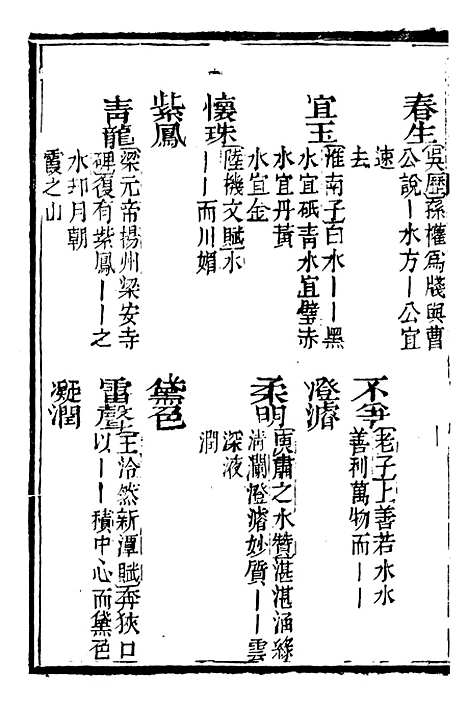 春生
吳歷孫權爲牋與曹
公說丨水方丨公宜
速
去
宜玉
淮南子白水丨丨黑
水宜砥青水宜璧赤
水宜丹黃
水宜金
懷珠
陸機文賦水
丨丨而川媚
紫鳳
青龍
梁元帝揚州梁安寺
碑復有紫鳳丨丨之
水却月朝
霞之山
不爭
老子上善若水水
善利萬物而丨丨
澄濬
柔明
庾肅之水贊湛湛涵綠
清瀾澄濬妙質丨丨雲
深液
潤
黛色
雷聲
王洽然新潭賦奔狹口
以丨丨積中心而黛色
凝潤